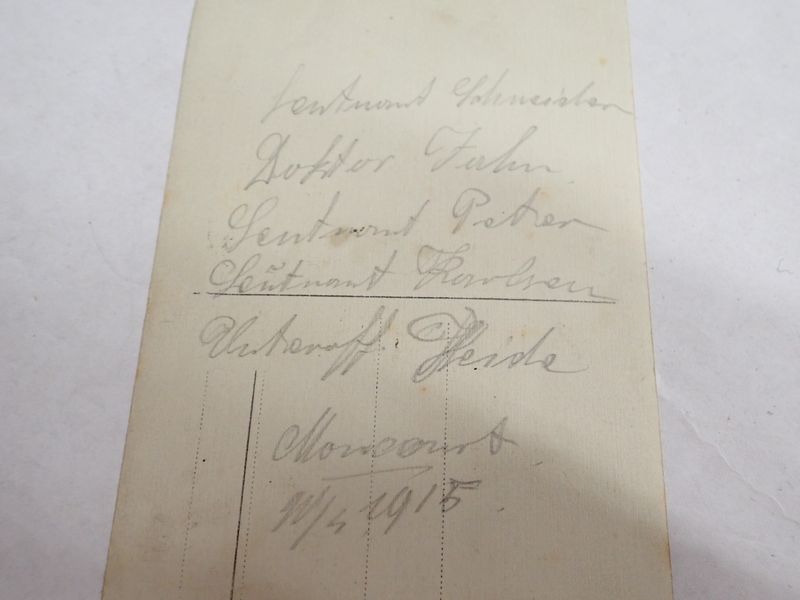 Leutnant Schneider
Doktor Jahn
Leutnant Peter
Leutnant Karlsen
Unteroff. Heide
Moncourt
1915